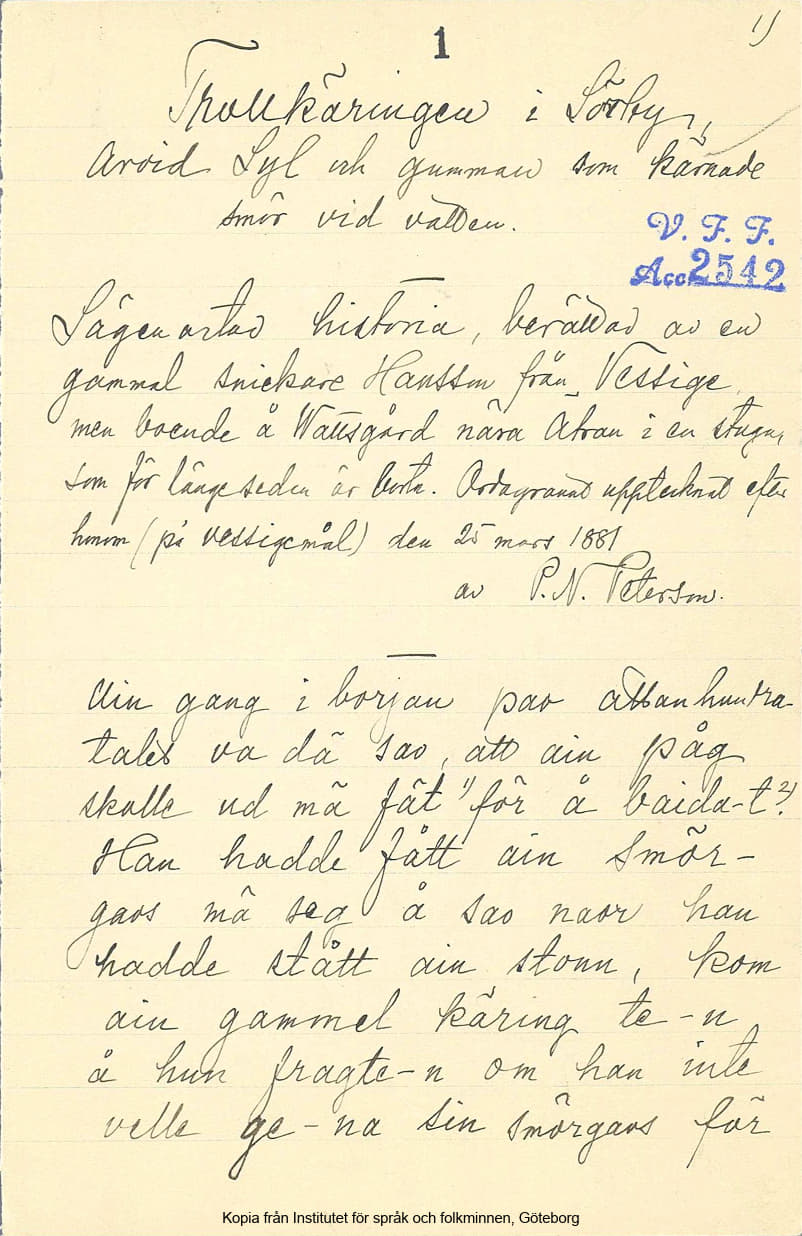 1
1)
Trollkäringen i Sörby,
Arvid Syl och gumman som kärnade
smör vid vatten.
V. F. F.
Acc 2542
Sägenartad historia, berättad av en
gammal snickare Hansson från Vessige,
men boende å Wattsgård nära Ätran i en stuga,
som för länge sedan är borta. Ordagrannt upptecknat efter
honom (på vessigemål) den 25 mars 1881
av P. N. Peterson.
Ain gang i borjan pao attanhundra-
talet va dä sao, att ain påg
skolle ud mä fät 1) för å baida-t 2).
Han hadde fått ain smör-
gaos mä seg å sao naor han
hadde stått ain stonn, kom
ain gammel käring te-n
å hun fragte-n om han inte
velle ge-na sin smörgaos för
Kopia från Institutet för språk och folkminnen, Göteborg